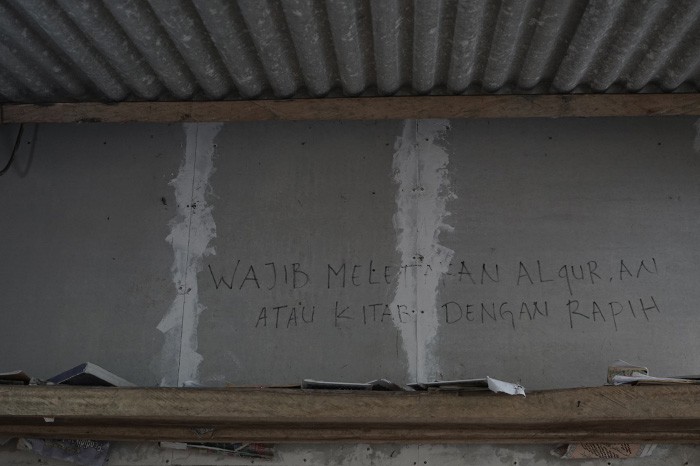 WAJIB MELETAKAN ALQUR,AN
ATAU KITAB.. DENGAN RAPIH